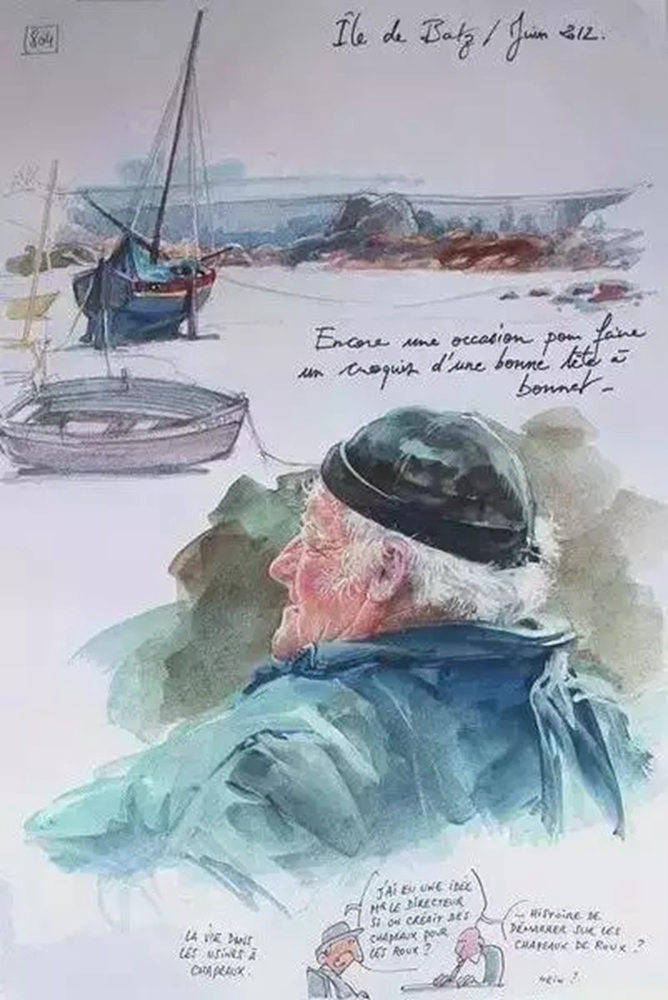 804
Île de Batz / Juin 2012.
Encore une occasion pour faire
un croquis d'une bonne tête à
bonnet –
LA VIE DANS
LES USINES À
CHAPEAUX.
J'AI EU UNE IDÉE
MR LE DIRECTEUR
SI ON CRÉAIT DES
CHAPEAUX POUR
LES ROUX ?
... HISTOIRE DE
DÉMARRER SUR LES
CHAPEAUX DE ROUX ?
HEIN ?